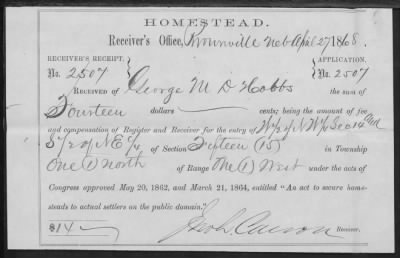 HOMESTEAD.
Receiver's Office, Brownville Neb April 27 1868.
RECEIVER'S RECEIPT, APPLICATION,
No. 2507 No. 2507
RECEIVED OF George M D Hobbs the sum of
Fourteen dollars cents; being the amount of fee
and compensation of Register and Receiver for the entry of W½ of N W¼ Sec 14 and
S½ of N E¼ of Section Fifteen (15) in Township
One (1) North of Range One (1) West under the acts of
Congress approved May 20, 1862, and March 21, 1864, entitled "An act to secure home-
steads to actual settlers on the public domain."
$14 Jno L. Carson Receiver.